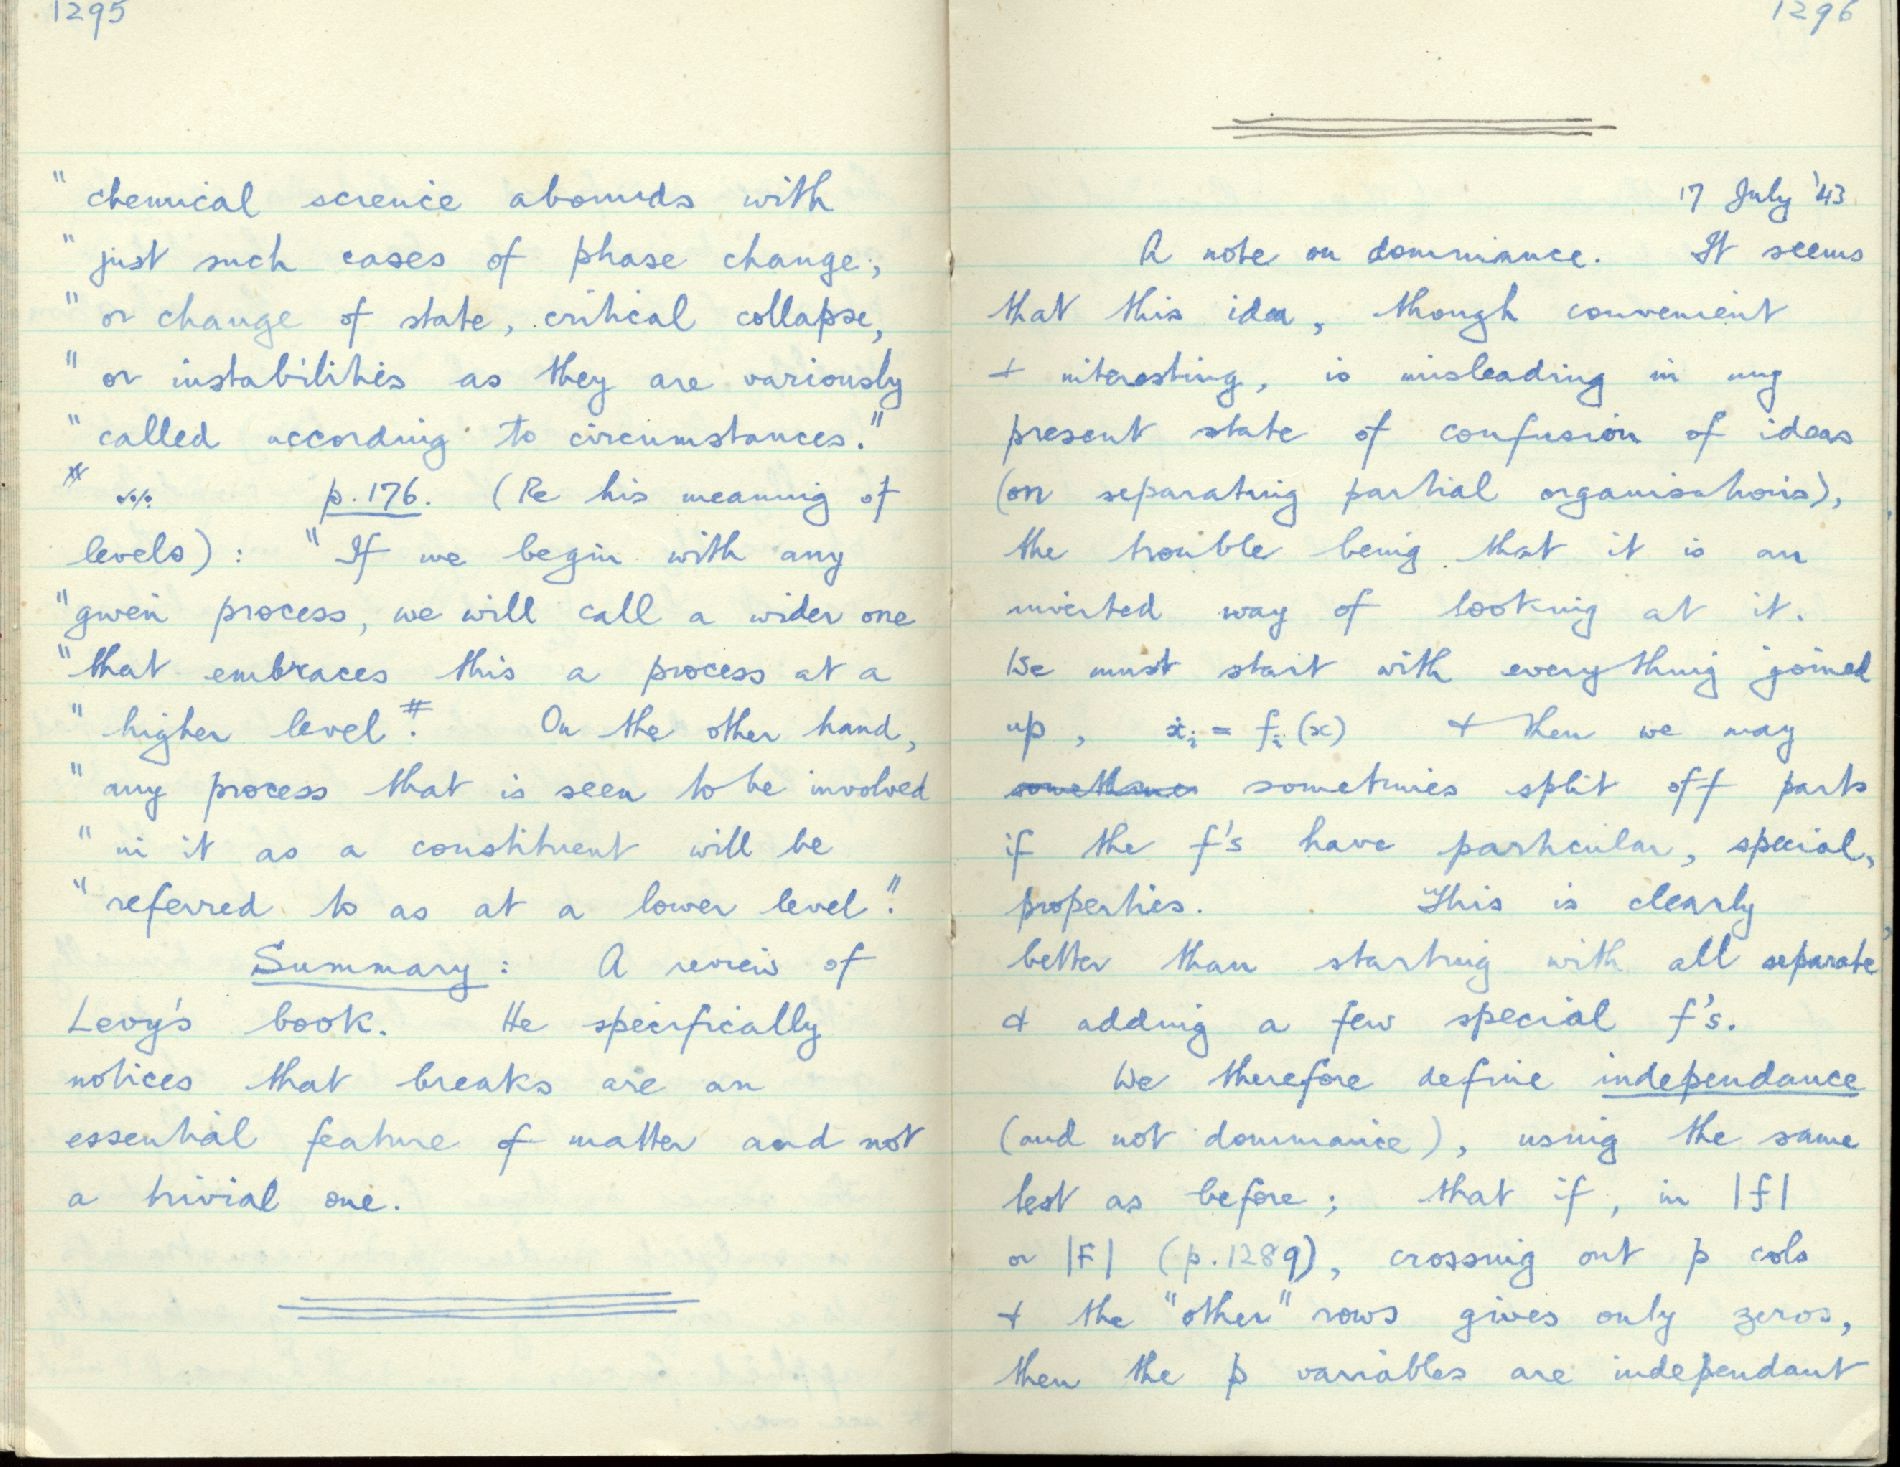 1295
" chemical science abounds with
" just such cases of phase change,
" or change of state, critical collapse,
" or instabilities as they are variously
" called according to circumstances."
p. 176. (Re his meaning of
levels) : " If we begin with any
" given process, we will call a wider one
" that embraces this a process at a
" higher level #. On the other hand,
" any process that is seen to be involved
" in it as a constituent will be
" referred to as at a lower level."
Summary : A review of
Levy's book. He specifically
notices that breaks are an
essential feature of matter and not
a trivial one.
1296
17 July '43
A note on dominance. It seems
that this idea, though convenient
+ interesting, is misleading in my
present state of confusion of ideas
(on separating partial organisations),
the trouble being that it is an
inverted way of looking at it.
We must start with everything joined
up, ẋᵢ = fᵢ(x) + then we may
sometimes sometimes split off parts
if the f's have particular, special,
properties. This is clearly
better than starting with all separate
+ adding a few special f's.
We therefore define independance
(and not dominance), using the same
test as before; that if, in |f|
or |F| (p.1289), crossing out p cols
+ the "other" rows gives only zeros,
then the p variables are independant